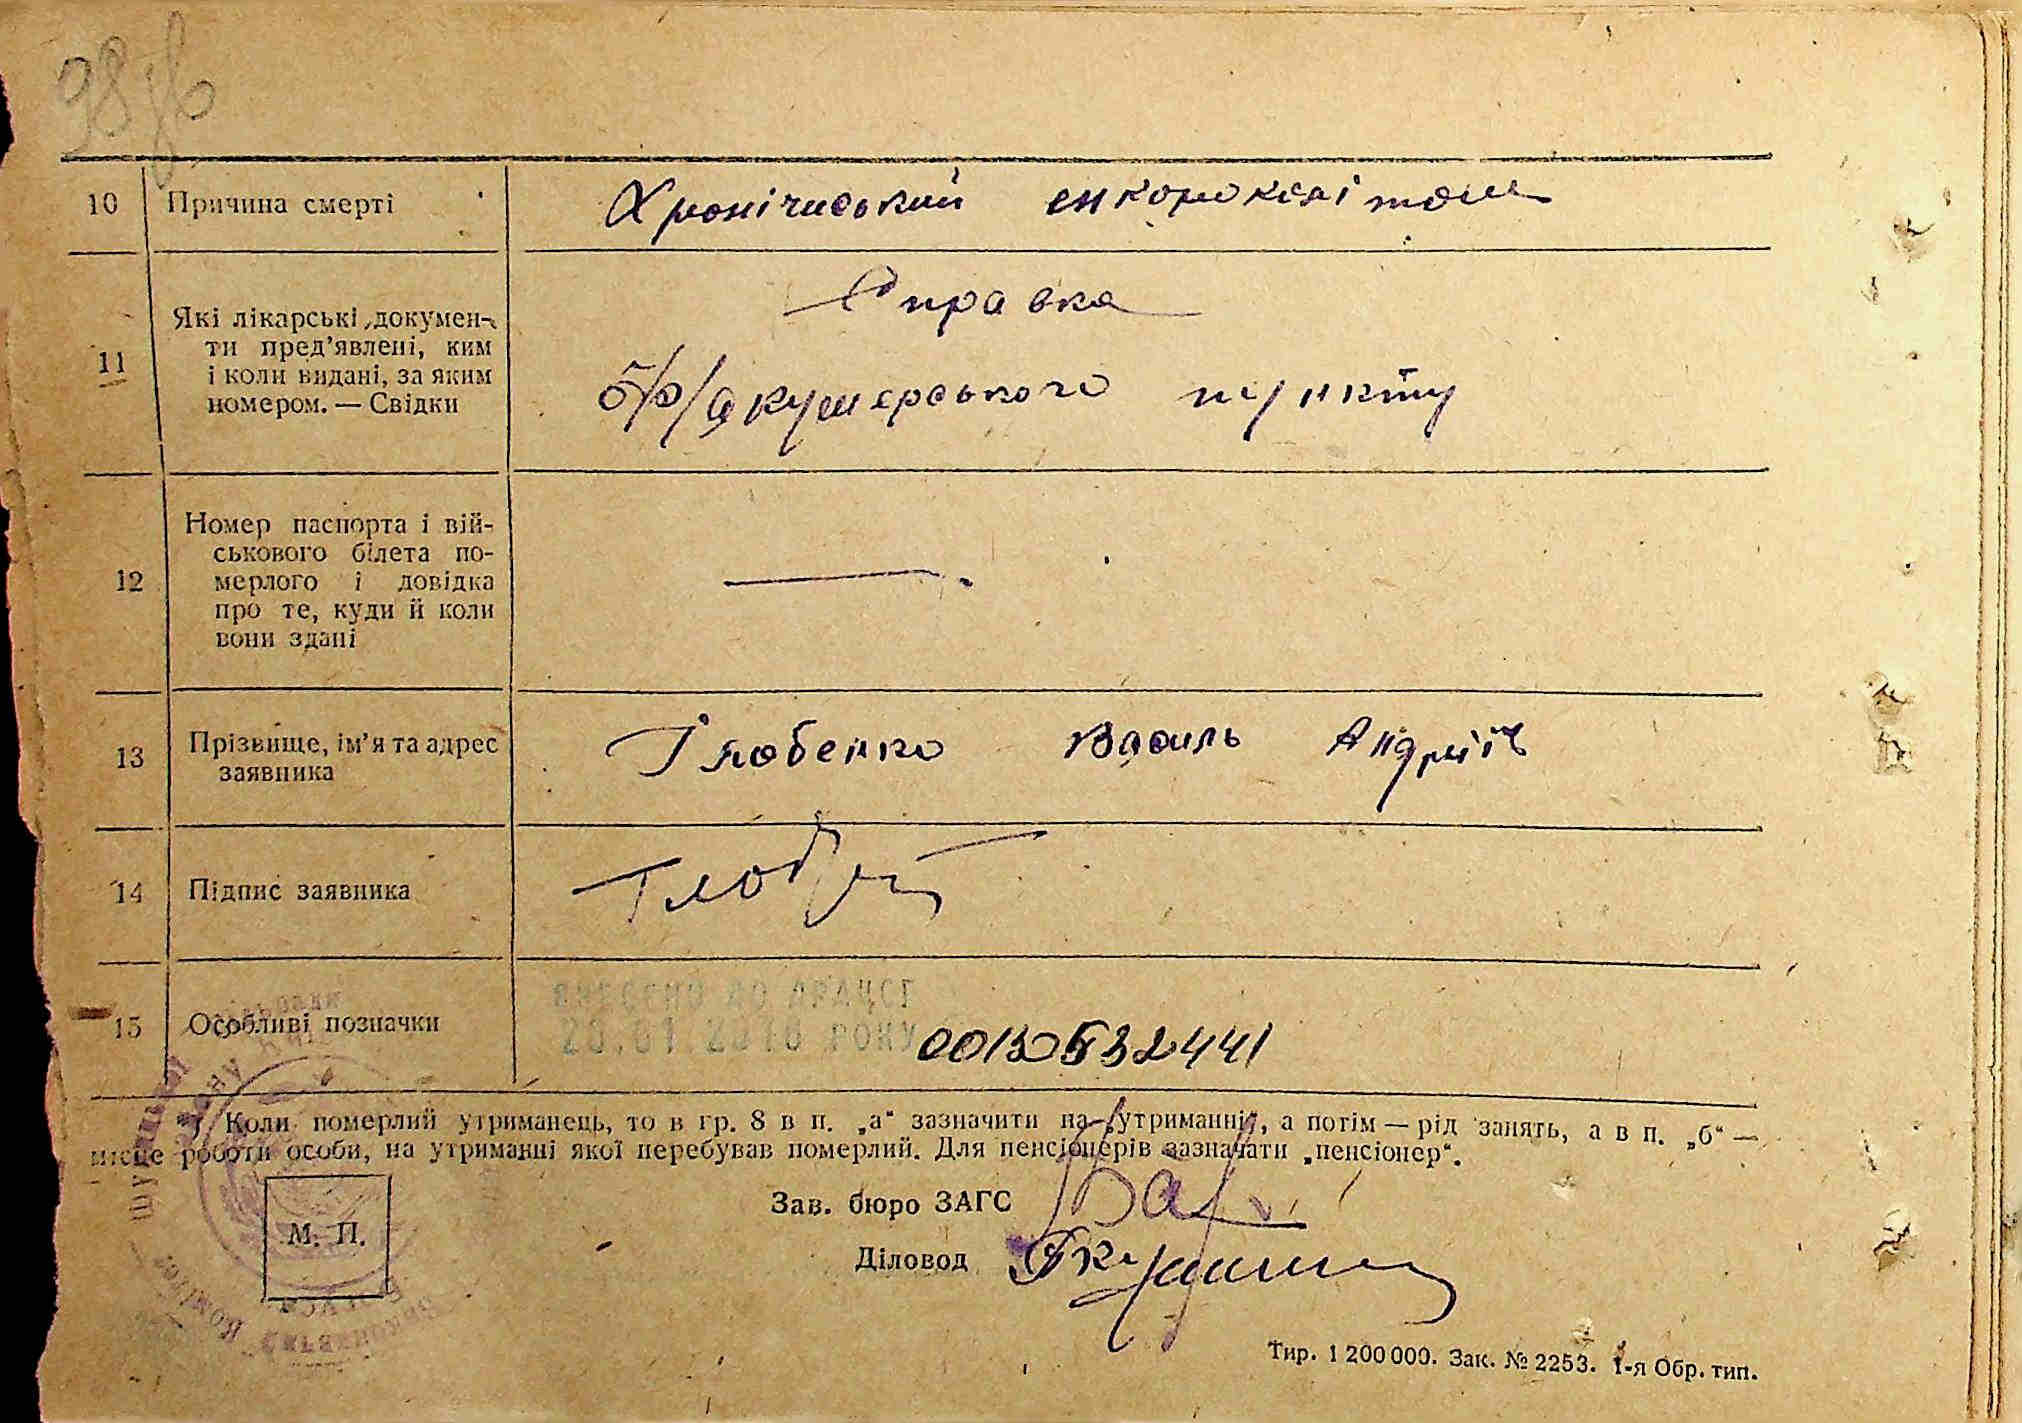 98 зв
10 Причина смерті Хронічиський ентороколітом
11 Які лікарські документи Справка
ти пред’явлені, ким
і коли видані, за яким ф/акушерського пункту
номером. — Свідки
Номер паспорта і вій-
ськового білета по-
12 мерлого і довідка —
про те, куди й коли
вони здані
13 Прізвище, ім’я та адрес Глобенко Василь Андріїв
заявника
14 Підпис заявника
ВНЕСЕНО ДО ДРАЦСГ
15 Особливі позначки РОКУ 00130532441
Коли померлий утриманець, то в гр. 8 в п. „а“ зазначити на „утриманні“, а потім — рід занять, а в п. „б“ —
місце роботи особи, на утриманні якої перебував померлий. Для пенсіонерів зазначати „пенсіонер“.
Зав. бюро ЗАГС
М. П.
Діловод
Тир. 1 200 000. Зак. № 2253. 1-я Обр. тип.